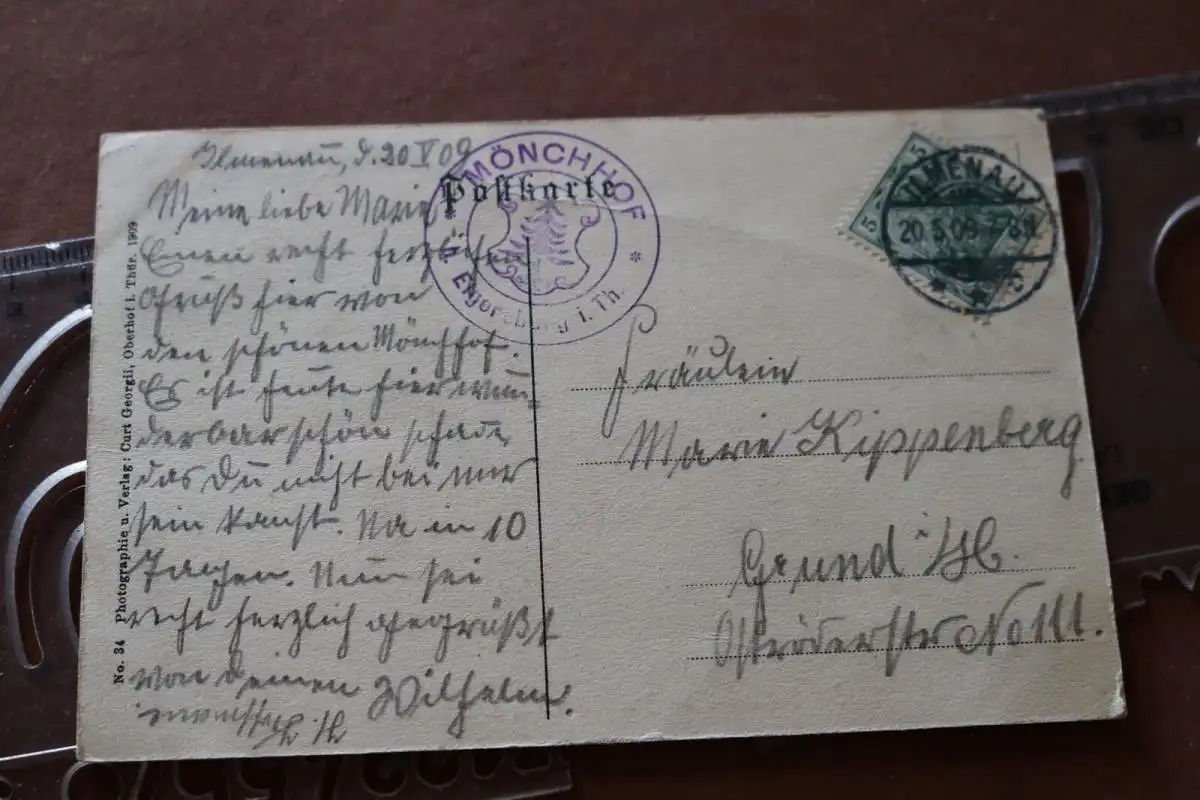 Ilmenau, d. 20 V 09
Meine liebe Marie
Einen recht herzlichen
Gruß hier von
den schönen Mönchhof.
Es ist heute hier wun-
derbar schön schade,
das Du nicht bei mir
sein kanst. Na in 10
Tagen. Nun sei
recht herzlich gegrüßt
von deinen Wilhelm.
Postkarte
MÖNCHHOF
b. Elgersburg i. Th.
5
5
ILMENAU
20.5.09. 7-8 N
Fräulein
Marie Kippenberg
Grund i/H.
Osteröderstr No 111.
No. 34 Photographie u. Verlag: Curt Georgii, Oberhof i. Thür. 1909